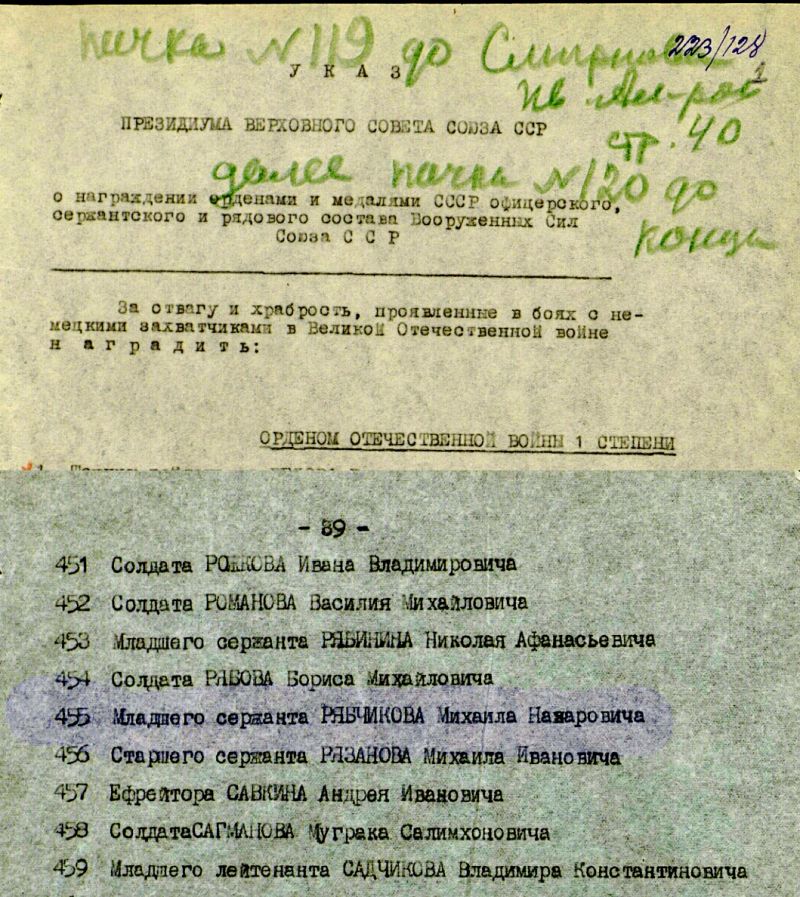 пачка N 119 до Смирнова
223/128
1
У К А З
пв
стр. 40
ПРЕЗИДИУМА ВЕРХОВНОГО СОВЕТА СОЮЗА ССР
далее пачка N 120 до
конца
о награждении орденами и медалями СССР офицерского,
сержантского и рядового состава Вооруженных Сил
Союза С С Р
За отвагу и храбрость, проявленные в боях с не-
мецкими захватчиками в Великой Отечественной войне
н а г р а д и т ь :
ОРДЕНОМ ОТЕЧЕСТВЕННОЙ ВОЙНЫ 1 СТЕПЕНИ
- 89 -
451 Солдата Ивана Владимировича
452 Солдата РОМАНОВА Василия Михайловича
453 Младшего сержанта РЯБИНИНА Николая Афанасьевича
454 Солдата РЯБОВА Бориса Михайловича
455 Младшего сержанта РЯБЧИКОВА Михаила Назаровича
456 Старшего сержанта РЯЗАНОВА Михаила Ивановича
457 Ефрейтора САВКИНА Андрея Ивановича
458 СолдатаСАГМАНОВА Муграка Салимхоновича
459 Младшего лейтенанта САДЧИКОВА Владимира Константиновича